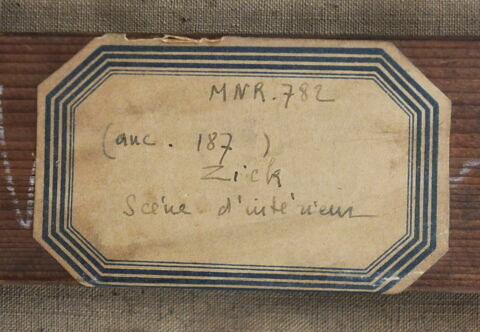 MNR.782
(anc. 187 )
Zick
Scène d'intérieur